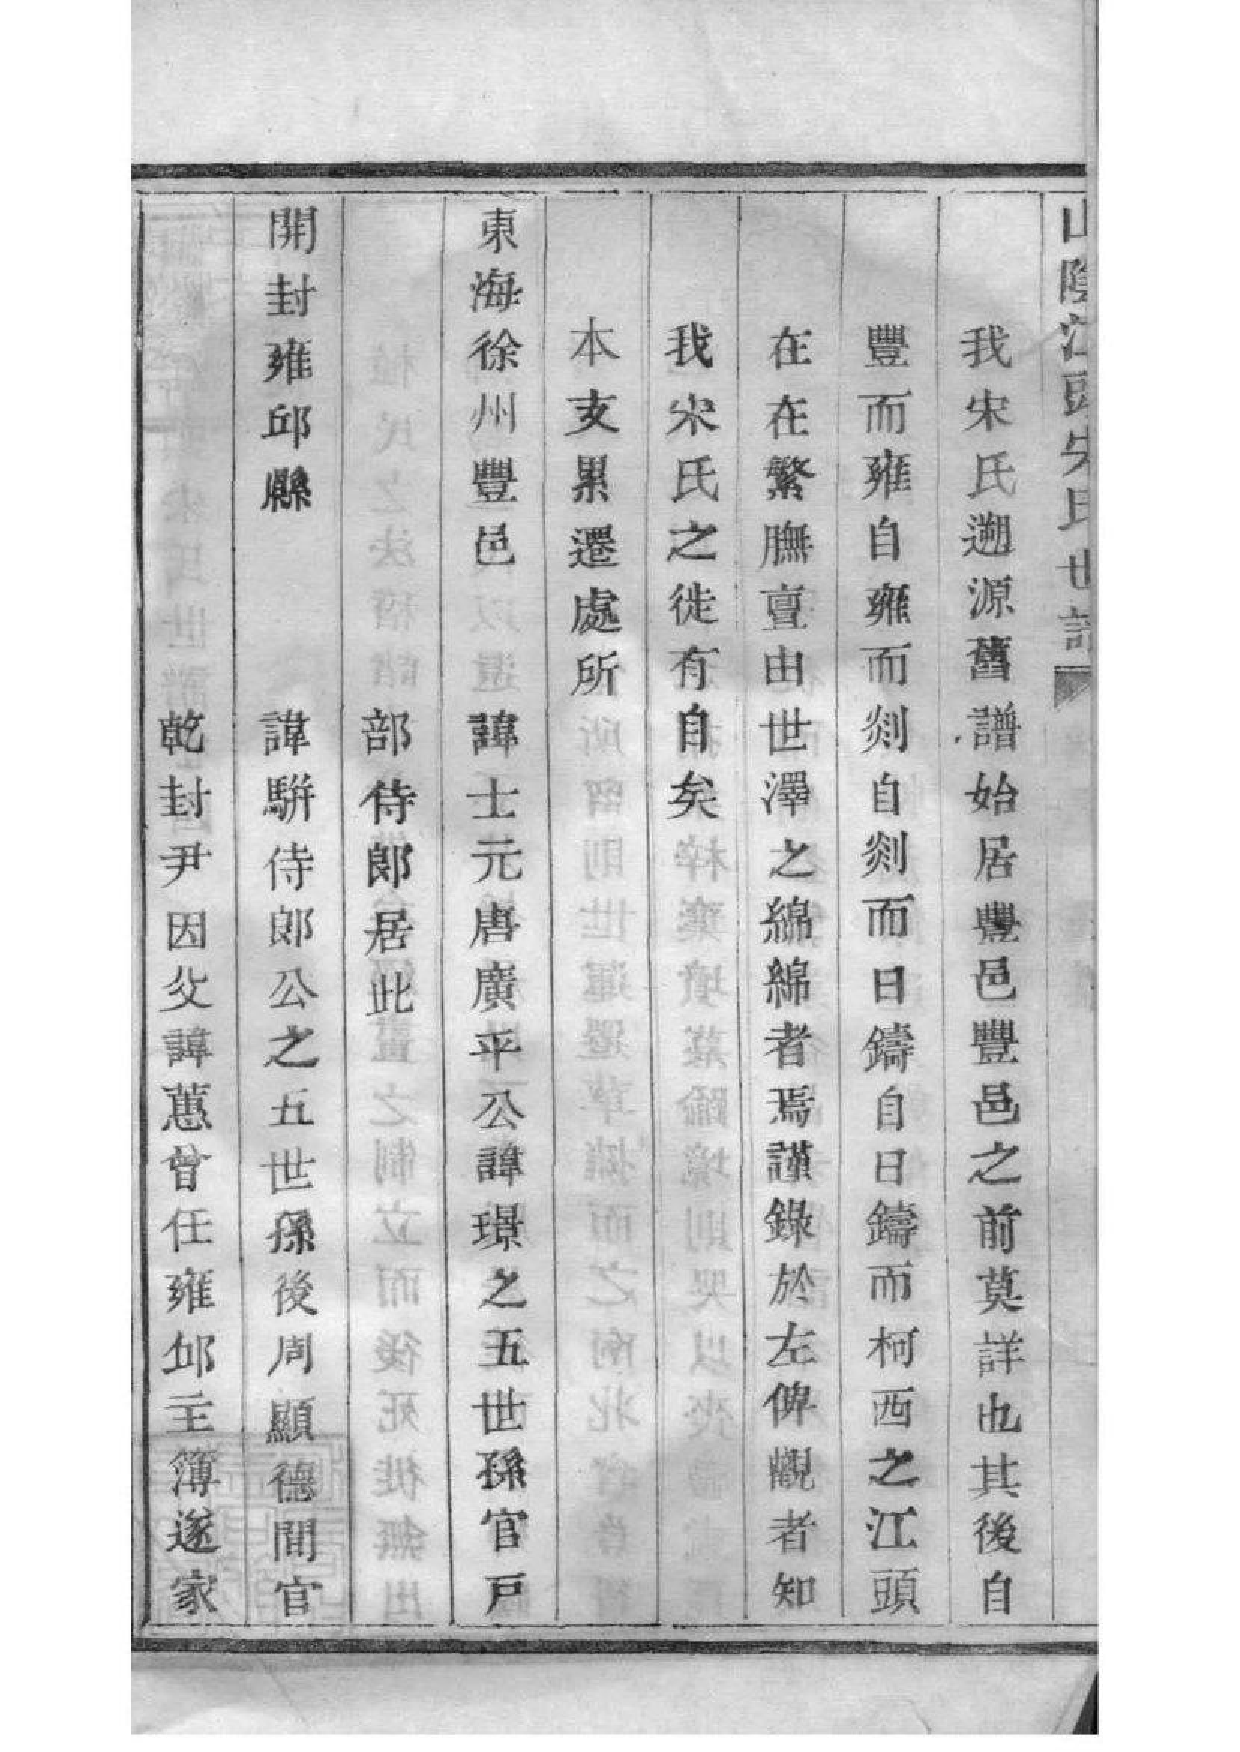 山陰江頭宋氏世譜
我宋氏遡源舊譜始居豐邑豐邑之前莫詳也其後自
豐而雍自雍而剡自剡而日鑄自日鑄而柯西之江頭
在在繁膴亶由世澤之綿綿者焉謹錄於左俾觀者知
我宋氏之徙有自矣
本支累遷處所
東海徐州豐邑 諱士元唐廣平公諱璟之五世孫官戸
部侍郎居此
開封雍邱縣 諱騈侍郎公之五世孫後周顯德間官
乾封尹因父諱蕙曾任雍邱主簿遂家